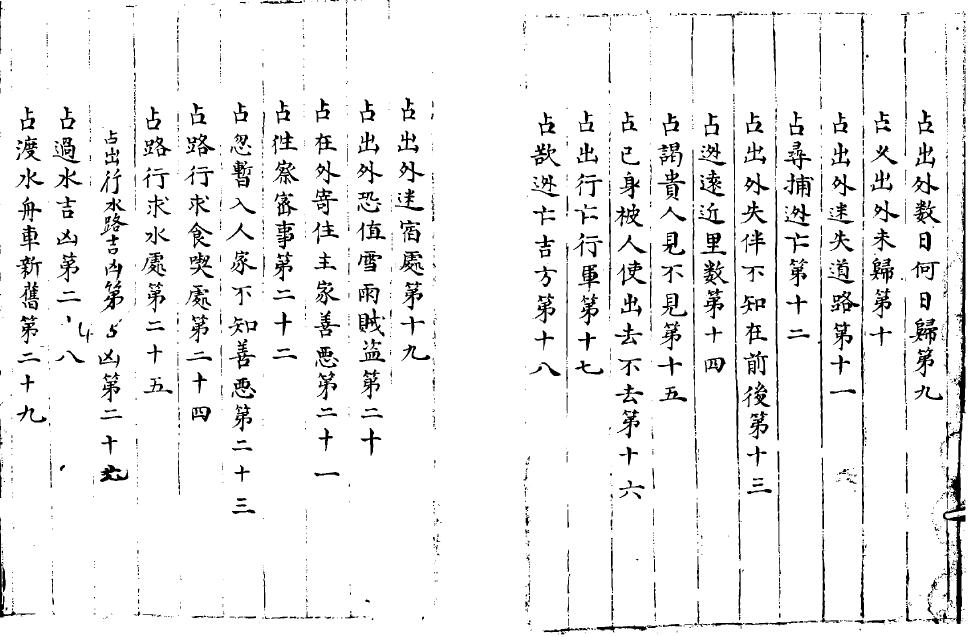 占出外数日何日歸第九
占久出外未歸第十
占出外迷失道路第十一
占尋捕迯亡第十二
占出外失伴不知在前後第十三
占迯遠近里数第十四
占謁貴人見不見第十五
占己身被人使出去不去第十六
占出行亡行軍第十七
占欲迯亡吉方第十八
占出外迷宿處第十九
占出外恐值雪雨賊盜第二十
占在外寄住主家善悪第二十一
占往察審事第二十二
占忽暫入人家不知善悪第二十三
占路行求食喫處第二十四
占路行求水處第二十五
占出行水路吉凶第5凶第二十
占過水吉凶第二八
占渡水舟車新舊第二十九